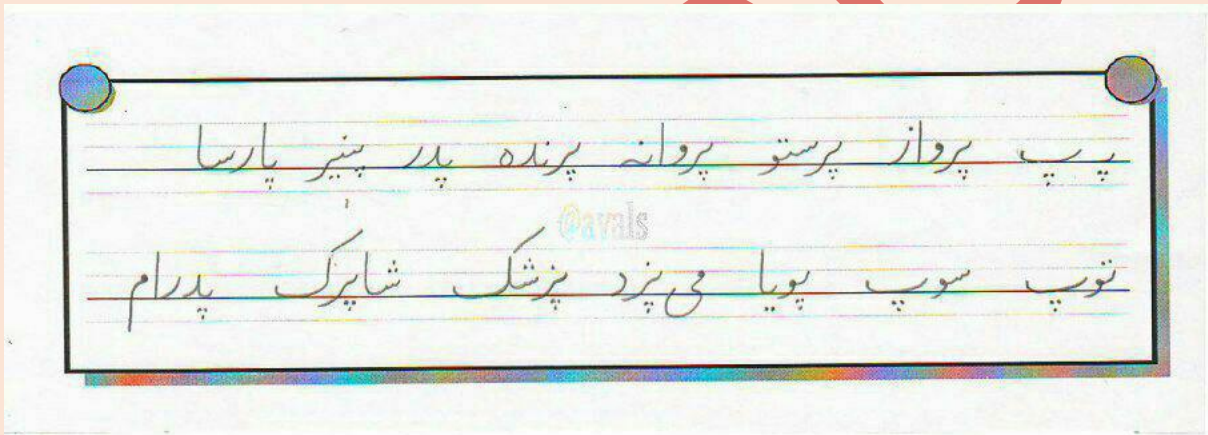 پ پ پرواز پرستو پروانه پرنده پدر پنیر پارسا
@avals
توپ سوپ پویا می‌پزد پزشک شاپرک پدرام